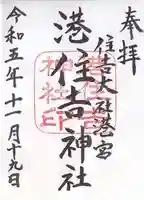 奉拝
住吉大社港宮
港住吉神社
港住吉
神社印
令和五年十一月十九日